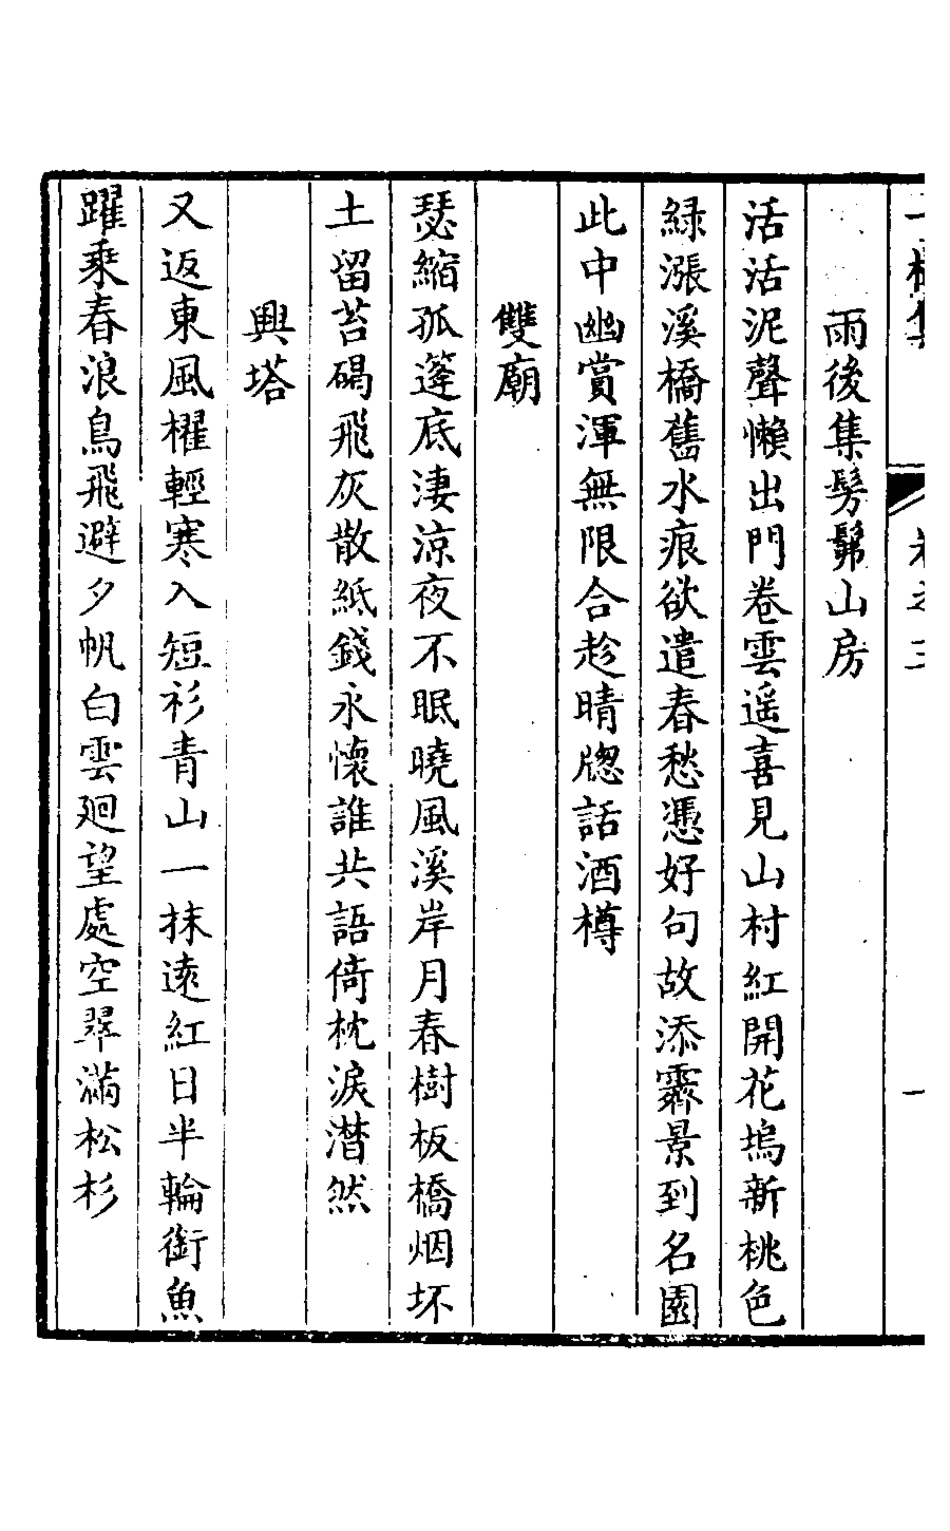 雨後集髣髴山房
活活泥聲懶出門卷雲遥喜見山村紅開花塢新桃色
綠漲溪橋舊水痕欲遣春愁憑好句故添霽景到名園
此中幽賞渾無限合趁晴牕話酒樽
雙廟
瑟縮孤篷底淒涼夜不眠曉風溪岸月春樹板橋烟坏
土留苔碣飛灰散紙錢永懷誰共語倚枕淚潸然
興塔
又返東風櫂輕寒入短衫青山一抹遠紅日半輪銜魚
躍乘春浪鳥飛避夕帆白雲廻望處空翠滿松杉